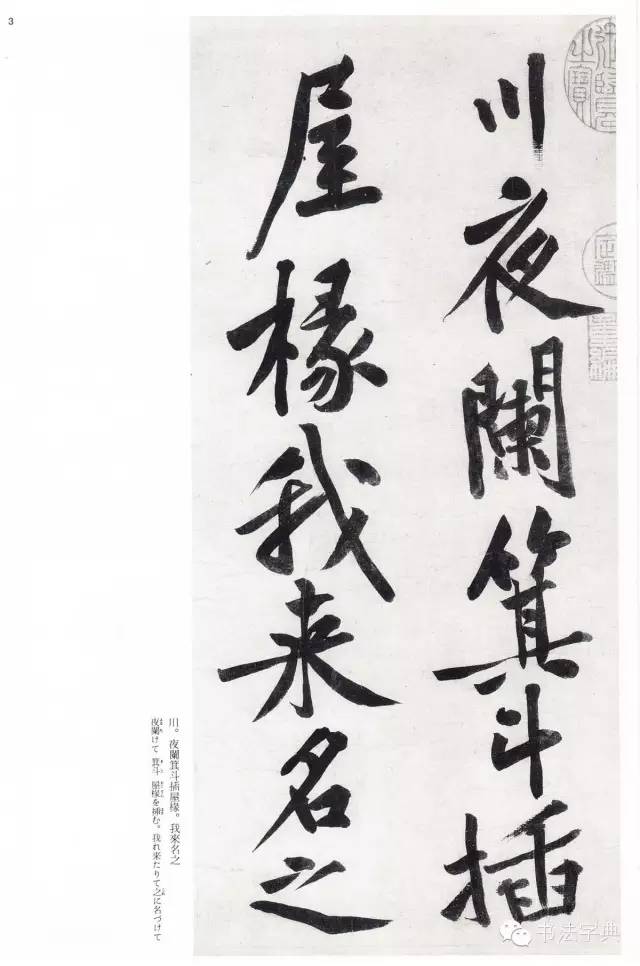 3
川夜闌箕斗插
屋椽我来名之
川。夜闌箕斗插屋椽。我來名之
夜闌けて 箕斗 屋椽を挿む。我れ来たりて之に名づけて
书法字典